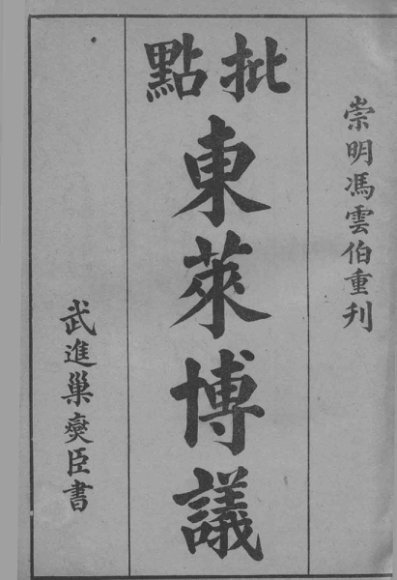 崇明馮雲伯重刊
批點
東萊博議
武進巢奱臣書